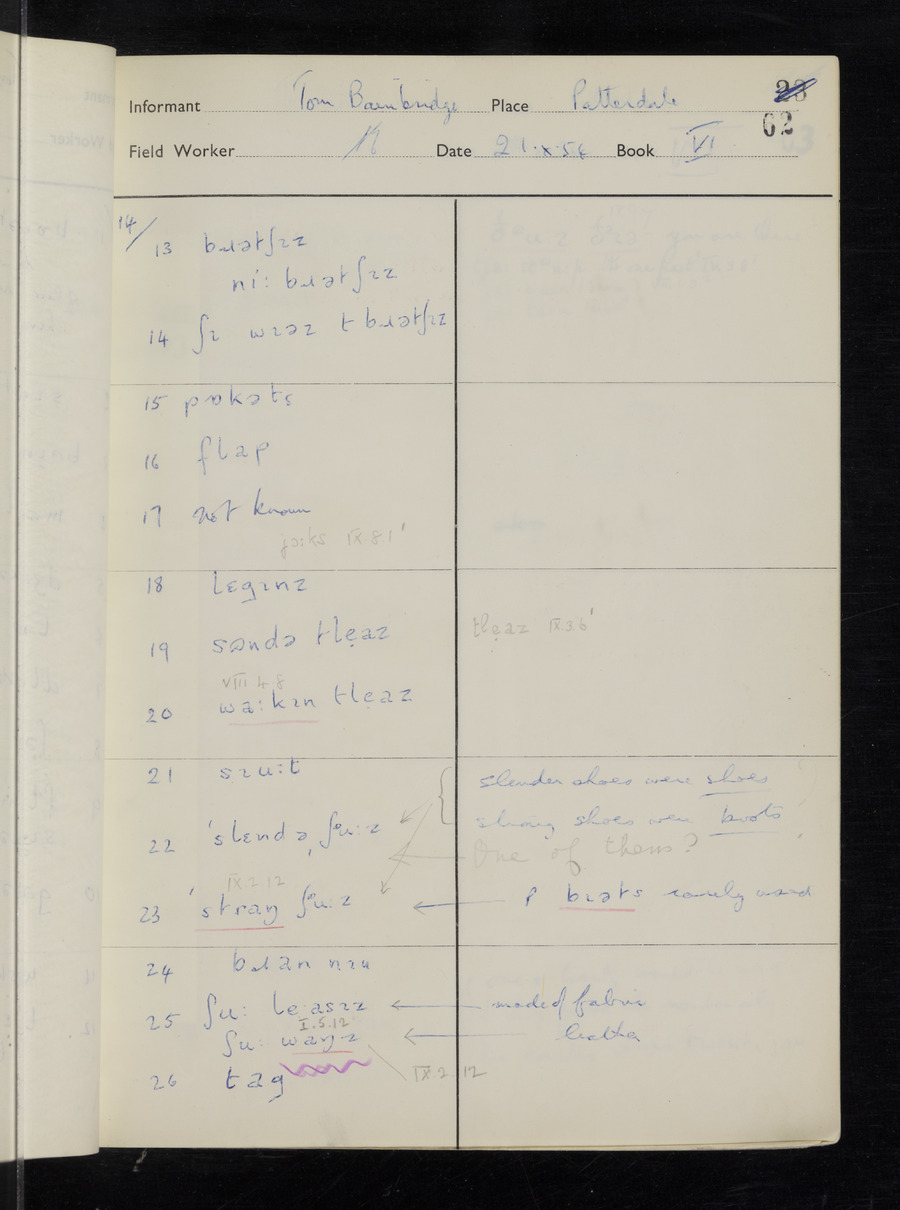 Informant Tom Bainbridge Place Patterdale
62
Field Worker Date 21.x.54 Book VI
14/
13 bɹɪətʃɪz
ni: bɹɪətʃɪz
14 ʃɪ wɪəz t bɹɪətʃɪz
15 pɒkəts
16 flap
17 not known
jɔ:ks IX.8.1'
18 lɛgɪnz
19 sɒndə tlẹaz tlẹaz IX.3.6'
VIII 4 8
20 wa:kɪn tlẹaz
21 sɪu:t slender shoes were shoes
strong shoes were boots
22 'slɛndə ˌʃᵊu:z One of them?
IX.2.12
23 'straŋ ʃᵊu:z ← p bɪəts rarely used
24 bɹan nɪu
25 ʃu: lẹasɪz ← made of fabric
I.5.12
ʃu: waŋz ← leather
26 tag IX 2.12